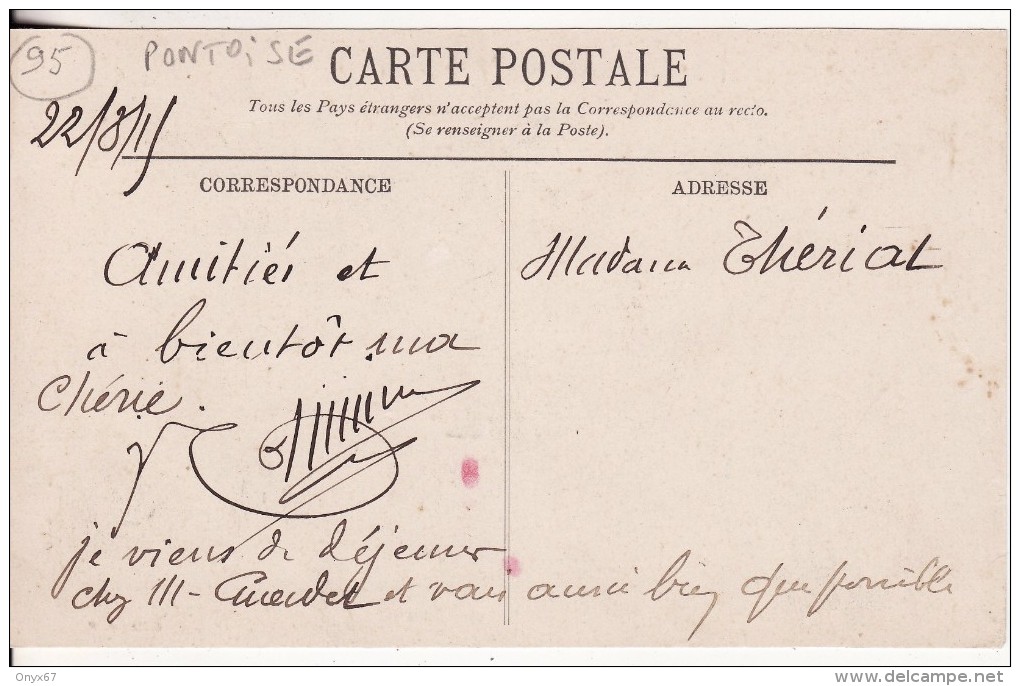 95
PONTOISE
CARTE POSTALE
Tous les Pays étrangers n'acceptent pas la Correspondance au recto.
(Se renseigner à la Poste).
22/8/15
CORRESPONDANCE
Amitiés et
à bientôt ma
chérie.
je viens de déjeuner
chez M- et vais aussi bien que possible
ADRESSE
Madame Thériat
Onyx67
delcampe.net